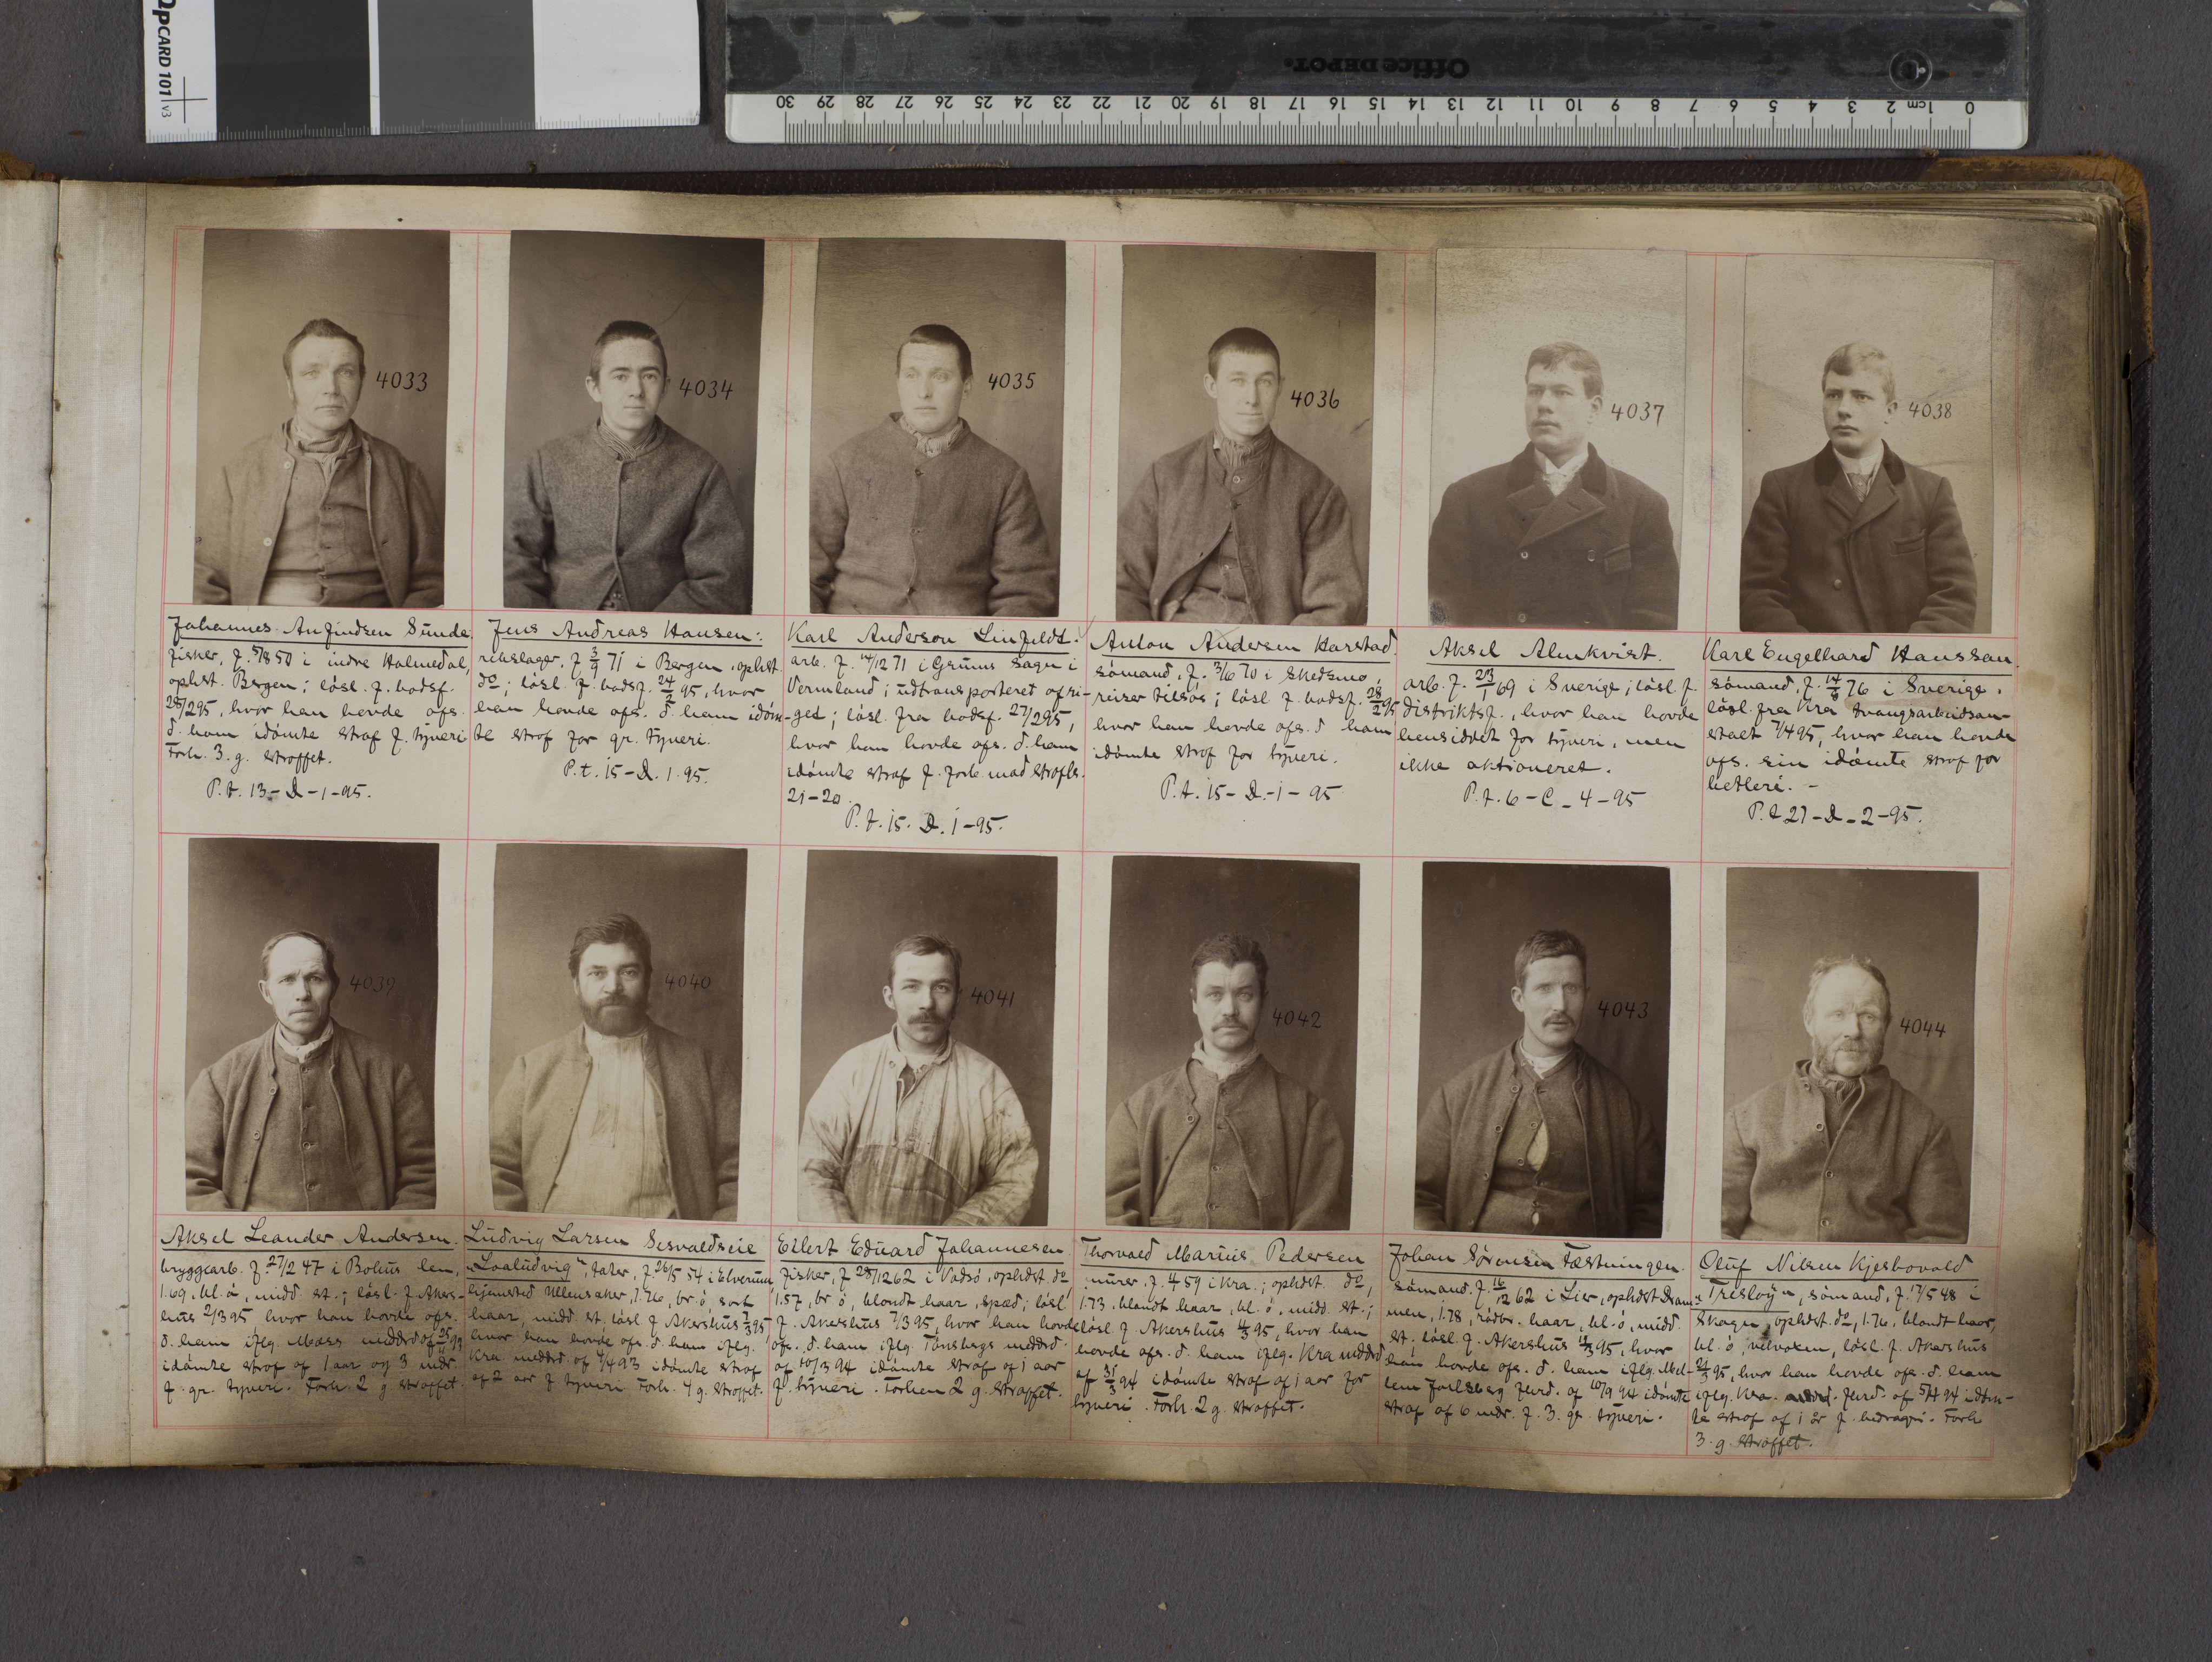 QPCARD 101 v3
Office DEPOT
0 1cm 2 3 4 5 6 7 8 9 10 11 12 13 14 15 16 17 18 19 20 21 22 23 24 25 26 27 28 29 30
4033
4034
4035
4036
4037
4038
Johannes Anfindsen Sunde.
fisker, f. 5/8 50 i indre Holmedal,
ophst. Bergen; løsl. f. bodsf.
25/2 95, hvor han havde afs.
d. ham idømte straf f. tyveri
Forh. 3. g. straffet.
P.t. 13-D-1-95.
Jens Andreas Hansen:
rebslager, f 3/9 71 i Bergen, ophst.
do; løsl. f. bodsf. 24/2 95, hvor
han havde afs. d. ham idøm-
te straf for gr. tyveri.
P.t. 15-D.1.95.
Karl Anderson Linfeldt.
arb. f. 14/12 71 i Grums sogn i
Vermland; udtransporteret af ri-
get; løsl. fra bodsf. 27/2 95,
hvor han havde afs. d. ham
idømte straf f. forb. mod strafls.
21-20.
P.t. 15. D. 1-95.
Anton Andersen Harstad.
sømand, f. 3/6 70 i Skedsmo,
reiser tilsøs; løsl. f. bodsf. 28/2 95
hvor han havde afs. d ham
idømte straf for tyveri.
P.t. 15-D.-1-95
Aksel Almkvist.
arb. f. 23/1 69 i Sverige; løsl. f.
distriktsf., hvor han havde
hensiddet for tyveri, men
ikke aktioneret.
P.t. 6-C-4-95
Karl Engelhard Hansson.
sømand, f. 14/8 76 i Sverige.
løsl. fra Kra tvangsarbeidsan-
stalt 7/4 95, hvor han havde
afs. sin idømte straf for
betleri.-
P.t 27-D-2-95.
4039
4040
4041
4042
4043
4044
Aksel Leander Andersen.
bryggearb. f. 27/2 47 i Bohus len,
1.69, bl. ø, midd. st.; løsl. f. Akers-
hus 2/3 95, hvor han havde afs.
d. ham iflg. Moss meddrd af
idømte straf af 1 aar og 3 mdr.
f. gr. tyveri. Forh. 2 g straffet
Ludvig Larsen Sesvaldseie
„Loaludvig", tater, f. 26/5 54 i Elverum,
hjemsted Ullensaker, 1.76, br. ø, sort
haar, midd. st. løsl. f Akershus 7/3 95,
hvor han havde afs. d. ham iflg.
Kra. meddrd. af 4/4 93 idømte straf
af 2 aar f tyveri Forh. 4 g. straffet.
Eilert Eduard Johannesen.
fisker, f 28/12 62 i Vadsø, ophdst do,
1.57, br ø, blondt haar, spæd; løsl.
f. Akershus 7/3 95, hvor han havde
afs. d. ham iflg. Tønsbergs meddrd.
af 10/3 94 idømte straf af 1 aar
f. tyveri. Forhen 2 g. straffet.
Thorvald Marius Pedersen
murer, f. 4 59 i Kra.; ophdst. do,
1.73, blondt haar, bl. ø, midd. st.;
løsl. f. Akershus 4/3 95, hvor han
havde afs. d. ham iflg. Kra meddrd
af 31/3 94 idømte straf af 1 aar for
tyveri. Forh. 2 g. straffet.
Johan Sørensen Fæstningen.
sømand. f. 16/12 62 i Lier, ophdst Dram-
men, 1.78, rødbr. haar, bl. ø, midd.
st; løsl. f. Akershus 95, hvor
han havde afs. d. ham iflg. Mel-
lem Jarlsberg Jurd. af 10/9 94 idømte
straf af 6 mdr. f. 3. g. tyveri.
Oluf Nilsen Kjesbovold
„Tresløy", sømand, f. 17/5 48 i
Skagen, ophdst. do, 1.76, blondt haar,
bl. ø, velvoksen, løsl. f. Akershus
21/3 95, hvor han havde afs. d. ham
iflg. Kra. Jurd. af 5/4 94 idøm-
te straf af 1 år f bedrageri. Forh
3. g. straffet.